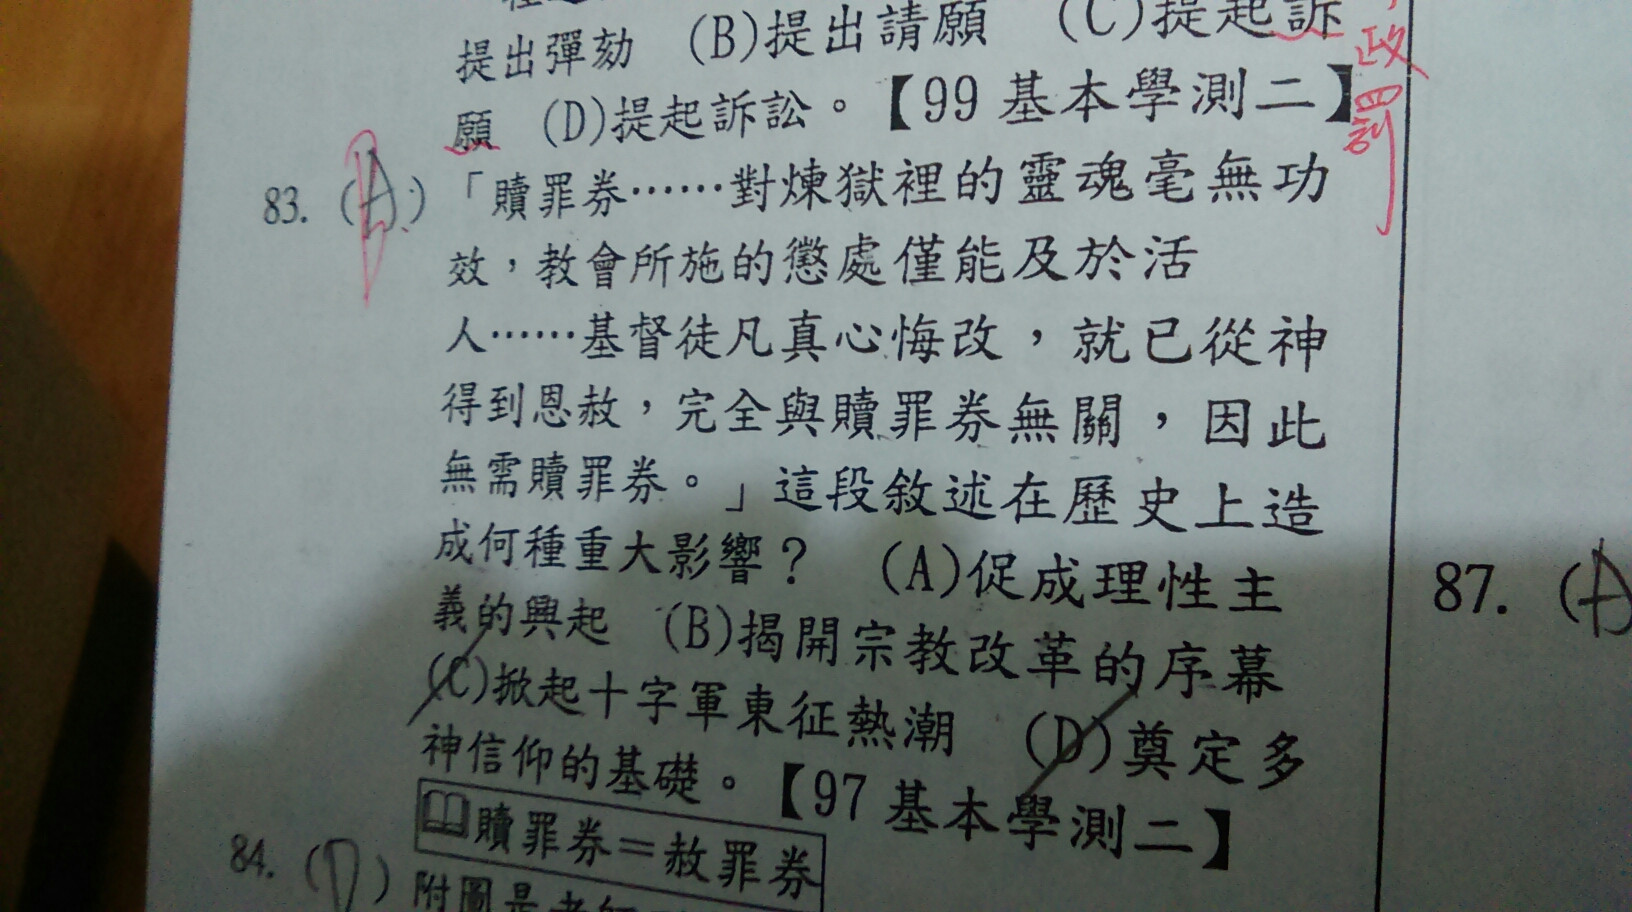 提出彈劾 (B)提出請願 (C)提起訴
願 (D)提起訴訟。【99 基本學測二】
政
罰
83. (A) 「贖罪券……對煉獄裡的靈魂毫無功
效，教會所施的懲處僅能及於活
人……基督徒凡真心悔改，就已從神
得到恩赦，完全與贖罪券無關，因此
無需贖罪券。」這段敘述在歷史上造
成何種重大影響？ (A)促成理性主
義的興起 (B)揭開宗教改革的序幕
(C)掀起十字軍東征熱潮 (D)奠定多
神信仰的基礎。【97 基本學測二】
贖罪券＝赦罪券
84. (D) 附圖是老師
87. (A